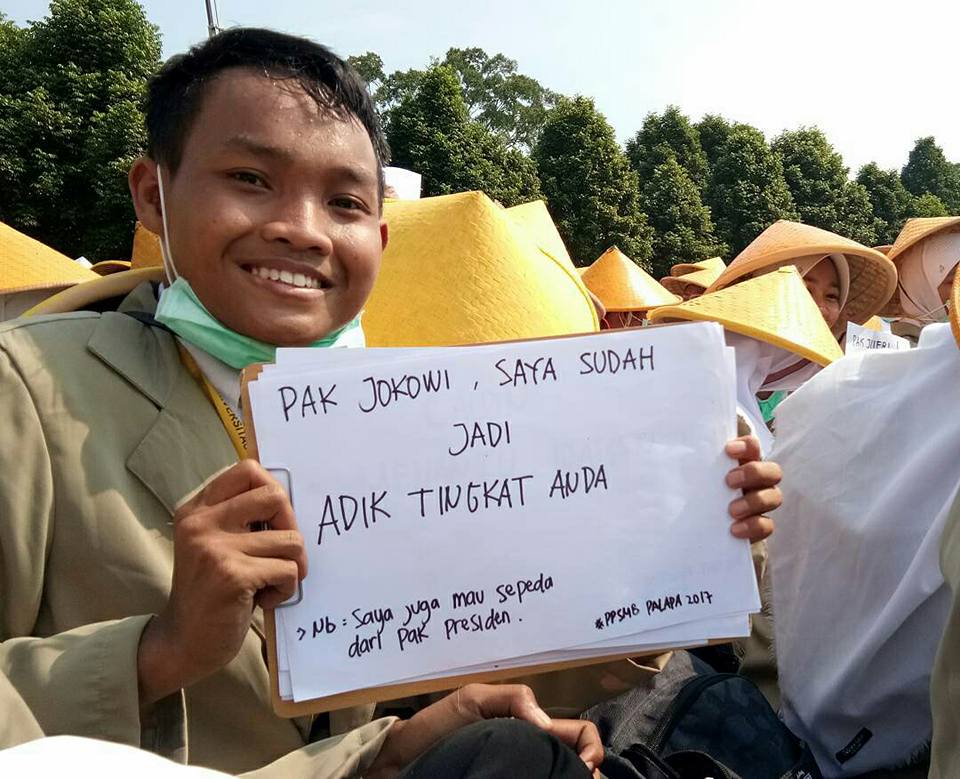 PAK JOKOWI , SAYA SUDAH
JADI
ADIK TINGKAT ANDA
> Nb : Saya juga mau sepeda
dari Pak Presiden .
#PPSMB PALAPA 2017